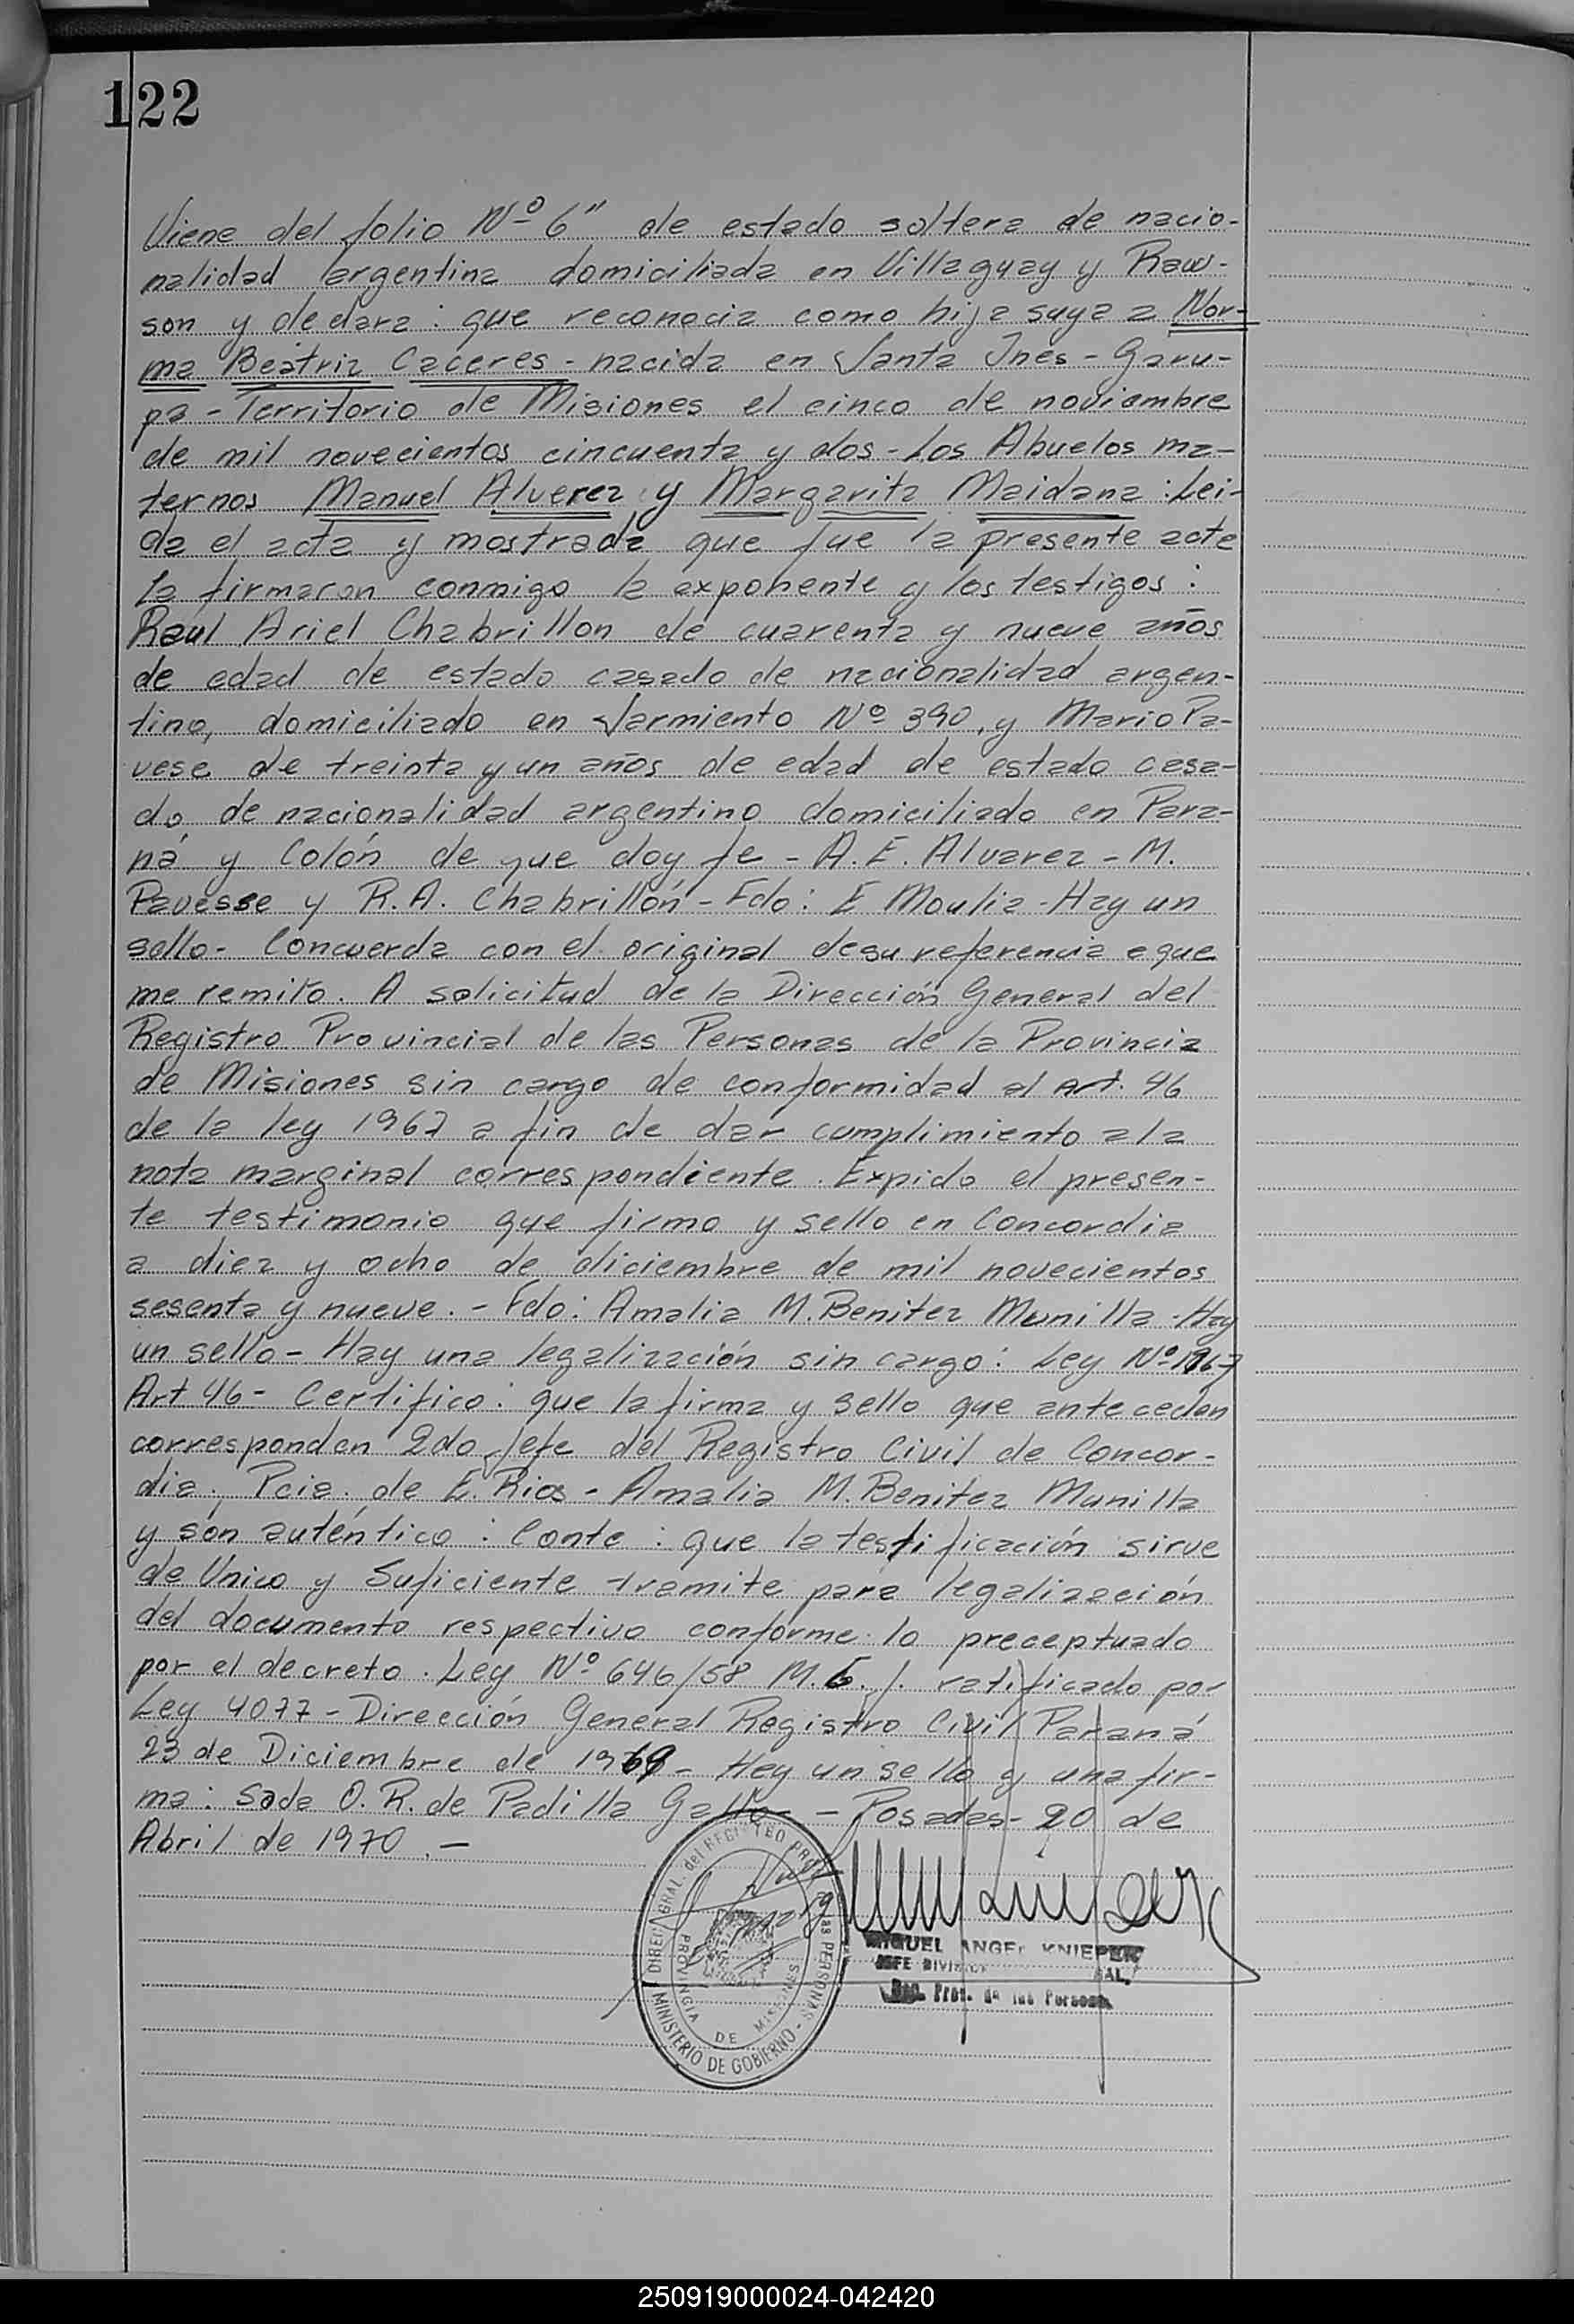 122
Viene del folio Nº 6" de estado soltera de nacio-
nalidad argentina domiciliada en Villaguay y Raw-
son y declara: que reconocia como hija suya a Nor-
ma Beatriz Caceres - nacida en Santa Ines - Garu-
pa - Territorio de Misiones el cinco de noviembre
de mil novecientos cincuenta y dos - Los Abuelos ma-
ternos Manuel Alverez y Margarita Maidana: Lei-
da el acta y mostrada que fue la presente acte
la firmaron conmigo la exponente y los testigos:
Raúl Ariel Chabrillon de cuarenta y nueve años
de edad de estado casado de nacionalidad argen-
tino, domiciliado en Sarmiento Nº 390, y Mario Pa-
vese de treinta y un años de edad de estado casa-
do, de nacionalidad argentino domiciliado en Para-
ná y Colón de que doy fe - A. E. Alvarez - M.
Pavesse y R. A. Chabrillón - Fdo: E Moulia - Hay un
sello - Concuerda con el original de su referencia a que
me remito. A solicitud de la Dirección General del
Registro Provincial de las Personas de la Provincia
de Misiones sin cargo de conformidad al Art. 46
de la ley 1967 a fin de dar cumplimiento a la
nota marginal correspondiente. Expido el presen-
te testimonio que firmo y sello en Concordia
a diez y ocho de diciembre de mil novecientos
sesenta y nueve. - Fdo: Amalia M. Benitez Munilla - Hay
un sello - Hay una legalización sin cargo: Ley Nº 1967
Art 46 - Certifico: que la firma y sello que anteceden
corresponden 2do Jefe del Registro Civil de Concor-
dia, Pcia. de E. Rios - Amalia M. Benitez Munilla
y són auténtico: Conte: que la testificación sirve
de Unico y Suficiente tramite para legalización
del documento respectivo conforme lo preceptuado
por el decreto. Ley Nº 646/58 M.G.J. ratificado por
Ley 4077 - Dirección General Registro Civil Paraná
23 de Diciembre de 1969 - Hay un sello y una fir-
ma: Sada O. R. de Padilla Gallo - Posadas - 20 de
Abril de 1970. -
DIREC. GRAL. del REGISTRO PROV. de las PERSONAS
PROVINCIA DE MISIONES
MINISTERIO DE GOBIERNO
MIGUEL ANGEL KNIEPER
JEFE DIVISION
Reg. Prov. de las Personas
250919000024-042420